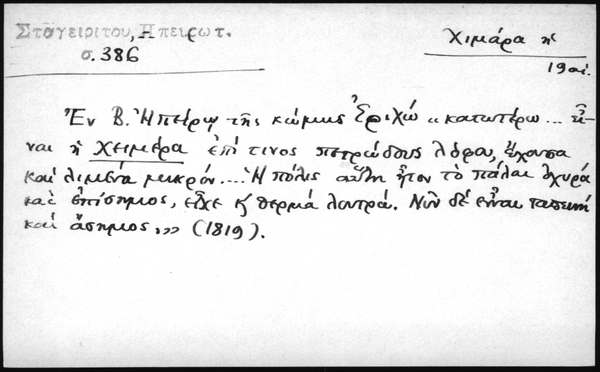 Σταγειρίτου, Ηπειρωτ.
σ. 386
Χιμάρα ἡ
19 αἰ.
Ἐν Β. Ἠπείρῳ τῆς κώμης Δριχώ "κατωτέρω... εἶ-
ναι ἡ Χειμέρα ἐπί τινος πετρώδους λόφου, ἔχουσα
καί λιμένα μικρόν.... Ἡ πόλις αὕτη ἦτον τὸ πάλαι ὀχυρά
καὶ ἐπίσημος, εἶχε κ' θερμά λουτρά. Νῦν δέ εἶναι ταπεινή
καί ἄσημος,,, (1819).